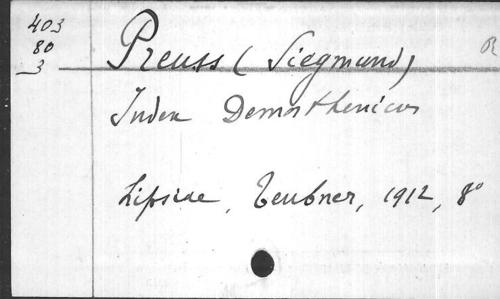 403
80
3
Preuss (Siegmund)
R
Index Demosthenicus
Lipsiae, Teubner, 1912, 8°